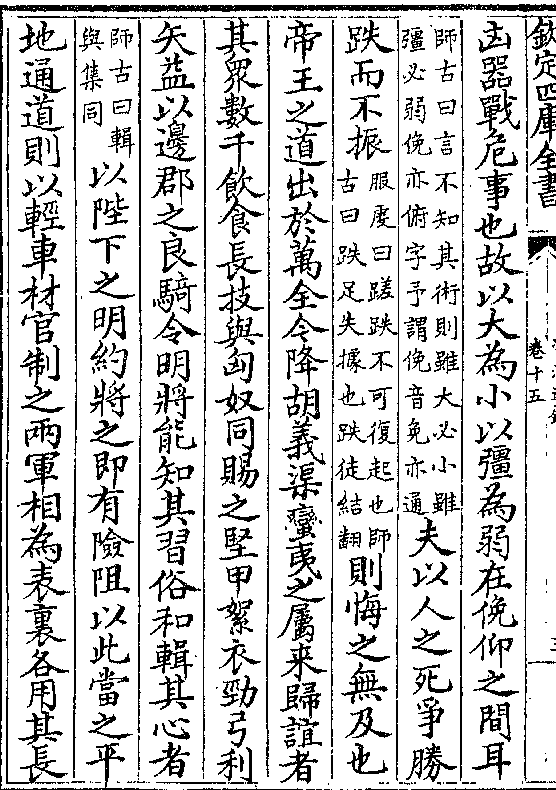 欽定四庫全書
卷十五
凶器戰危事也故以大為小以彊為弱在俛仰之間耳
師古曰言不知其術則雖大必小雖
彊必弱俛亦俯字予謂俛音免亦通
夫以人之死爭勝
跌而不振
服虔曰蹉跌不可復起也師
古曰跌足失據也跌徒結翻
則悔之無及也
帝王之道出於萬全今降胡義渠蠻夷之屬來歸誼者
其衆數千飲食長技與匈奴同賜之堅甲絮衣勁弓利
矢益以邊郡之良騎令明將能知其習俗和輯其心者
師古曰輯
與集同
以陛下之明約將之即有險阻以此當之平
地通道則以輕車材官制之兩軍相為表裏各用其長